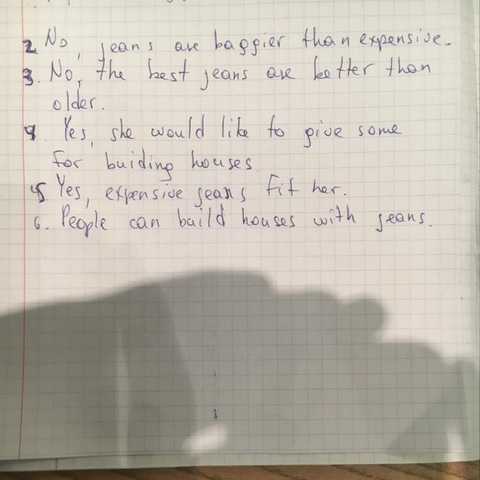 2. No, jeans are baggier than expensive.
3. No, the best jeans are better than
older.
4. Yes, she would like to give some
for buiding houses
5. Yes, expensive jeans fit her.
6. People can baild houses with jeans.